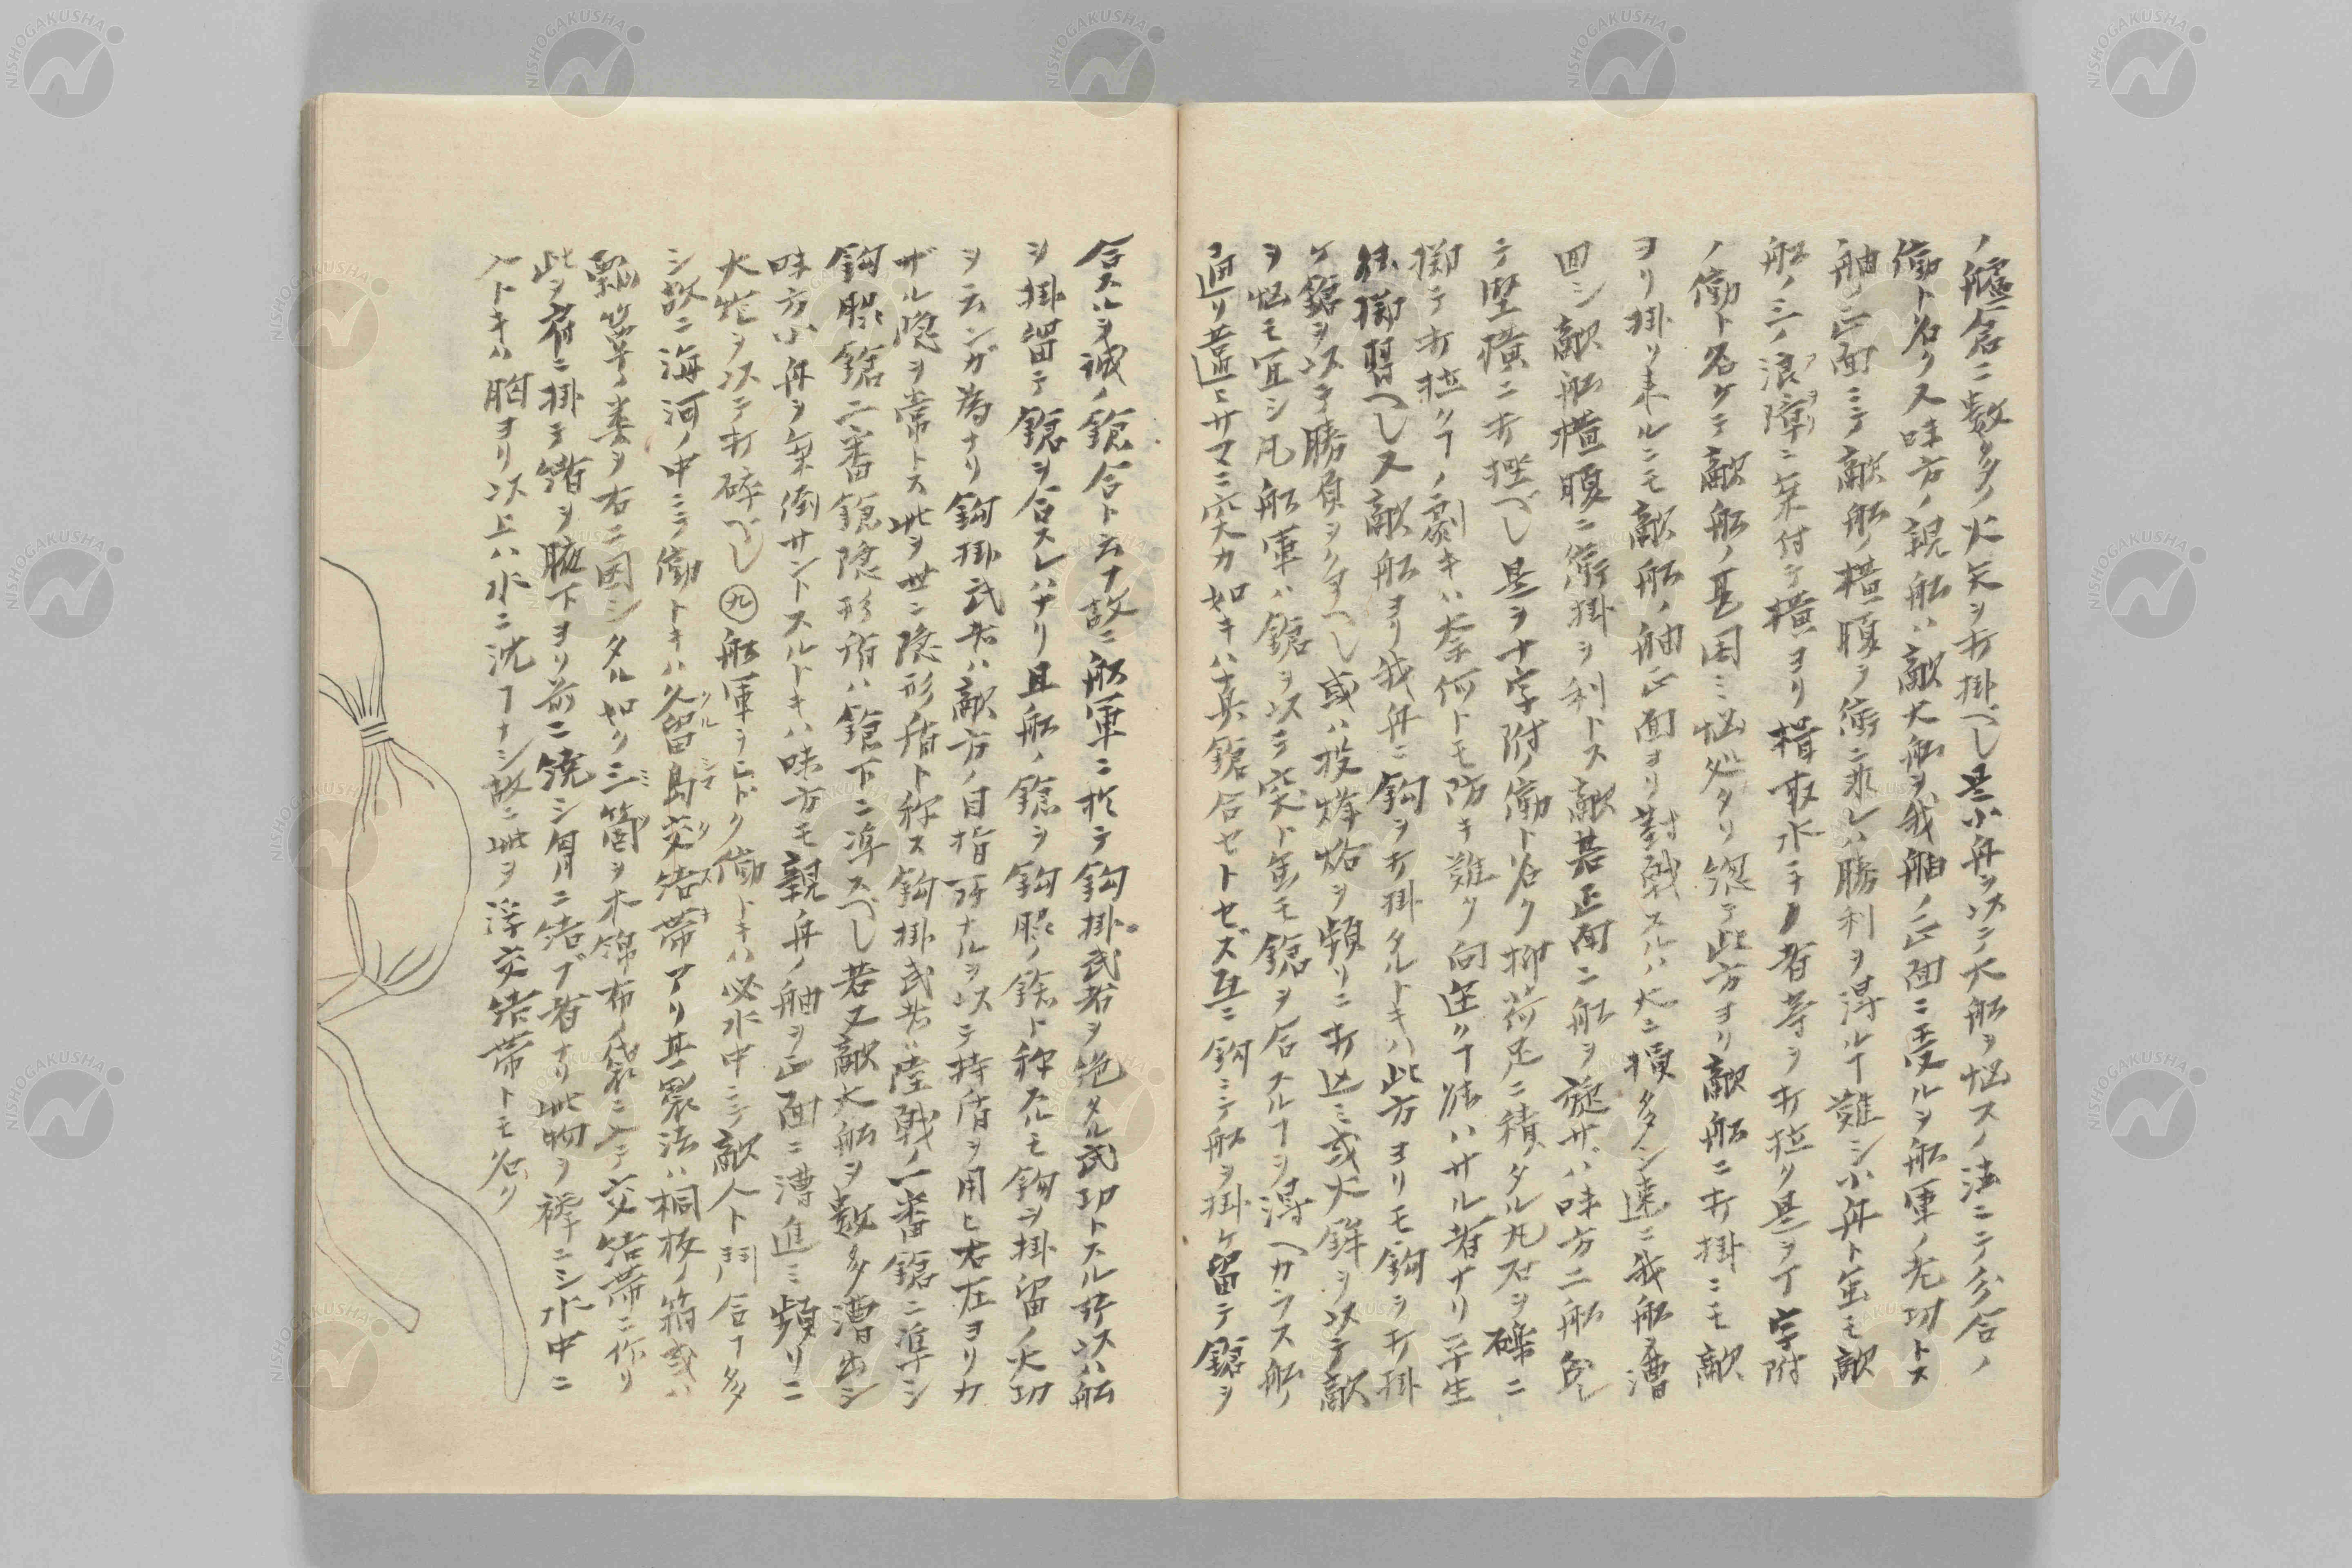 ノ艫倉ニ数多ノ火矢ヲ打掛べし是小舟ヲ以テ大船ヲ悩スノ法ニテ多合ノ
働ト名ク又味方ノ親船ハ敵大船ヲ我舳ノ正面ニ受ルヲ船軍ノ先功トス
舳ノ正面ニテ敵船ノ横腹ヲ衝ニ非レハ勝利ヲ得ルヿ難シ小舟ト雖モ敵
船ノ三ノ浪障ニ乗付テ横ヨリ楫取水主ノ者等ヲ打拉ク是ヲ丁字附
ノ働ト名ケテ敵船ノ甚困ミ悩処タリ総テ此方ヨリ敵船ニ打掛ニモ敵
ヨリ掛リ来ルニモ敵船ノ舳正面ヨリ對戦スルハ大ニ損多シ速ニ我船漕
回シ敵船横腹ニ衝掛ヲ利トス敵若正面ニ船ヲ旋サバ味方二船
テ堅横ニ打挫べし是ヲ十字附ノ働ト名ク抑荷足ニ積タル丸石ヲ礫ニ
擲テ打拉クヿノ劇キハ奈何トモ防キ難ク向近クヿ能ハサル者ナリ平生
能擲習へし又敵船ヨリ我舟ニ鈎ヲ打掛タルトキハ此方ヨリモ鈎ヲ打掛
ケ鎗ヲ以テ勝負ヲ決スへし或ハ投烽烙ヲ頻リニ打込ミ或大鉾ヲ以テ敵
ヲ悩モ宜シ凡船軍ハ鎗ヲ以テ突ト雖モ鎗ヲ合スルヿヲ得ヘカラス船ノ
通リ違ヒサマニ突カ如キハ真鎗合セトセズ互ニ鈎ニテ船ヲ掛ケ留テ鎗ヲ
合スルヲ誠ノ鎗合ト云ナ故ニ船軍ニ於テ鈎掛武者ヲ絶タル武功トスル所以ハ船
ヲ掛留テ鎗ヲ合スレハナリ且船ノ鎗ヲ鈎脇ノ鎗ト称スルモ鈎ヲ掛留ノ大功
ヲ云ンガ為ナリ鈎掛武者ハ敵方ノ目指所ナルヲ以テ持盾ヲ用ヒ左右ヨリカ
ザル隠ヲ常トス此ヲ世ニ隠形盾ト称ス鈎掛武者ハ陸戦ノ一番鎗ニ準シ
鈎脇鎗二番鎗隠形盾ハ鎗下ニ準スべし若又敵大船ヲ数多漕出シ
味方小舟ヲ乗倒サントスルトキハ味方モ親舟ノ舳ヲ正面ニ漕進ミ頻リニ
大炮ヲ以テ打碎べし㊈船軍ヲシトク働トキハ必水中ニテ敵人ト鬪合ヿ多
シ故ニ海河ノ中ニテ働トキハ久留島交結帯アリ其製法ハ桐板ノ箱或ハ
瓢箪ノ類ヲ右ニ図シタル如ク三箇ヲ木綿布ノ袋ニ入テ交結帯ニ作リ
此ヲ肩ニ掛テ端ヲ腋下ヨリ前ニ繞シ胸ニ結ブ者ナリ此物ヲ襷ニシ水中ニ
入トキハ胸ヨリ以上ハ水ニ沈ヿナシ故ニ此ヲ浮交結帯トモ名ク